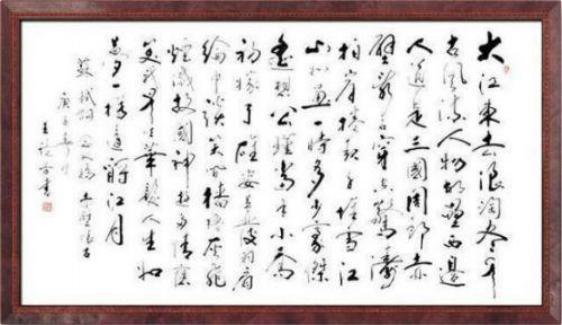 大江東去浪淘盡千
古風流人物故壘西邊
人道是三國周郎赤
壁亂石穿空驚濤
拍岸捲起千堆雪江
山如畫一時多少豪傑
遙想公瑾當年小喬
初嫁了雄姿英發羽扇
綸巾談笑間檣櫓灰飛
煙滅故國神遊多情應
笑我早生華髮人生如
夢一樽還酹江月
蘇軾詞念奴嬌赤壁懷古
庚子
王書